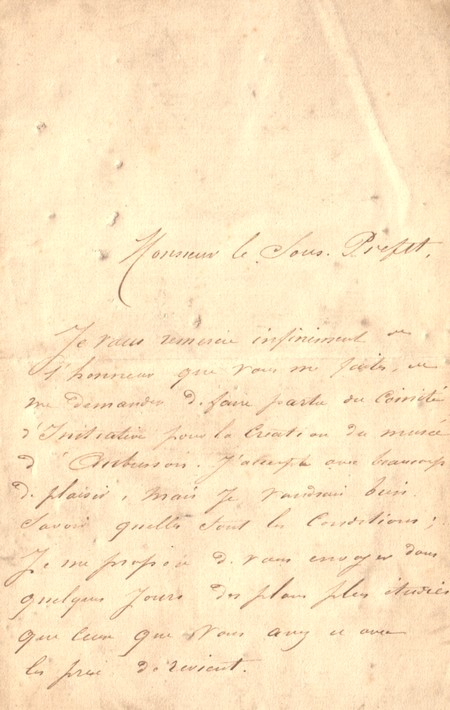 Monsieur le Sous. Prefet,
Je vous remercie infiniment de
l'honneur que vous me faites, de
me demander de faire partie du Comité
d'Initiative pour la Création du musée
d'Aubusson. J'accepte avec beaucoup
de plaisir, mais je voudrais bien
savoir quelles sont les Conditions;
Je me propose de vous envoyer dans
quelques Jours des plans plus étudiés
que ceux que vous avez eu avec
les prix de revient.